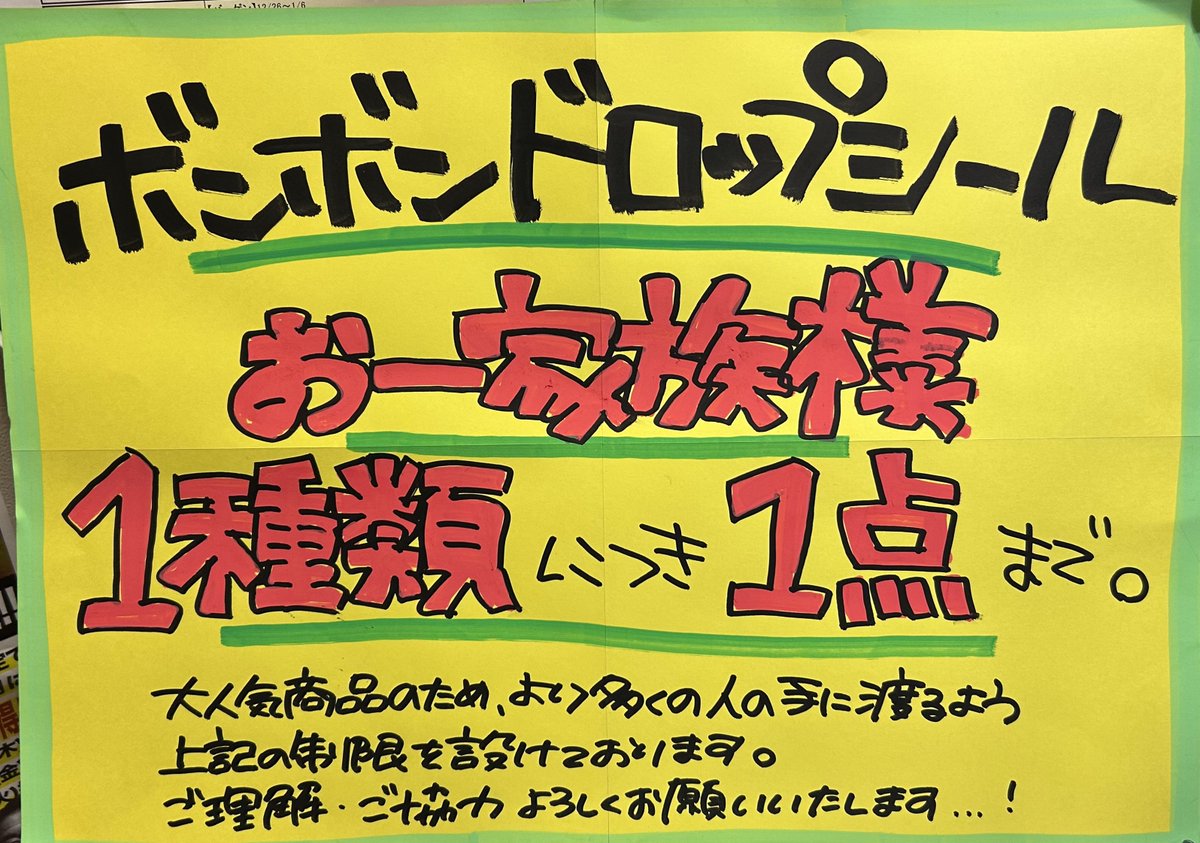 12/26〜1/6
ボンボンドロップシール
お一家族様
1種類につき1点まで。
大人気商品のため、より多くの人の手に渡るよう
上記の制限を設けております。
ご理解・ご協力よろしくお願いいたします...!